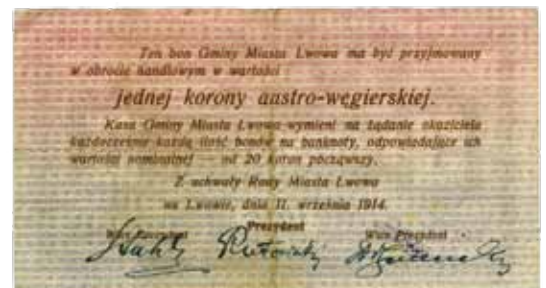 Ten bon Gminy Miasta Lwowa ma być przyjmowany
w obrocie handlowym w wartości
jednej korony austro-węgierskiej.
Kasa Gminy Miasta Lwowa wymieni na żądanie okaziciela
każdocześnie każdą ilość bonów na banknoty, odpowiadające ich
wartości nominalnej — od 20 koron począwszy.
Z uchwały Rady Miasta Lwowa
we Lwowie, dnia 11. września 1914.
Prezydent
Wice Prezydent Wice Prezydent
Rutowski